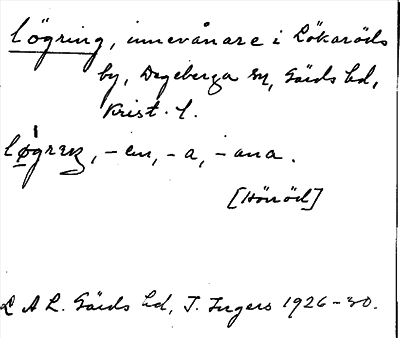 lögring, innevånare i Lökaröds
by, Degeberga sn, Gärds hd,
Krist. l.
-en, -a, -ana.
[Hönöd]
L A L. Gärds hd, I. Ingers 1926-30.